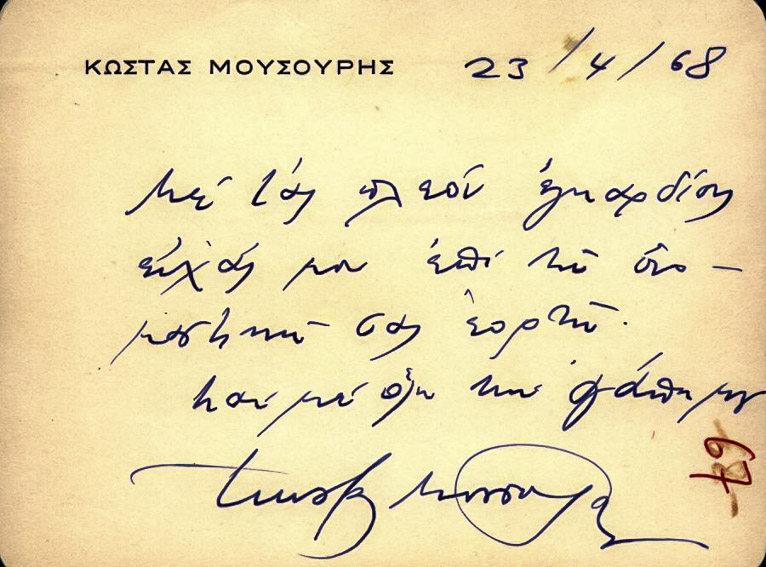 ΚΩΣΤΑΣ ΜΟΥΣΟΥΡΗΣ 23/4/68
Μέ τάς πλέον ἐγκαρδίους
εὐχάς μου ἐπί τῇ ὀνο-
μαστικῇ σας ἑορτῇ.
Καί μέ ὅλη τήν ἀγάπη μου
Κώστας Μουσούρης
67